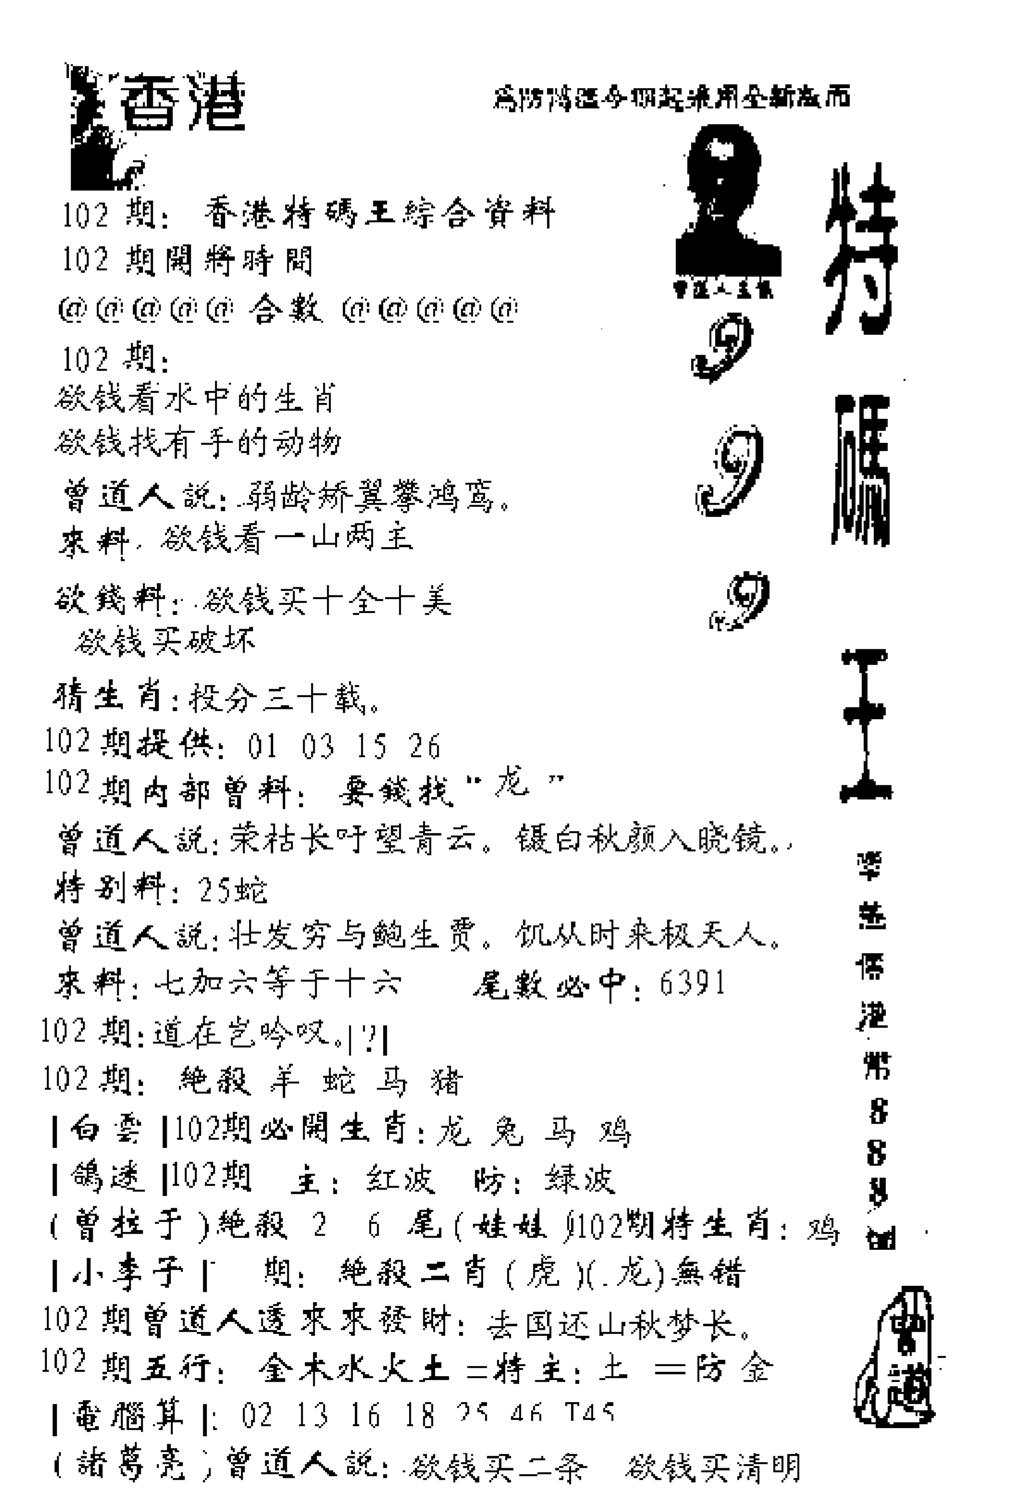 香港
為防偽區今期起采用全新版面
102 期: 香港特碼王綜合資料
102 期開將時間
@@@@@ 合數 @@@@@
102 期:
欲钱看水中的生肖
欲钱找有手的动物
曾道人説: 弱龄矫翼攀鸿鸾。
來料. 欲钱看一山两主
欲錢料: 欲钱买十全十美
欲钱买破坏
猜生肖: 投分三十载。
102 期提供: 01 03 15 26
102 期内部曾料: 要錢找“龙”
曾道人説: 荣枯长吁望青云。 镊白秋颜入晓镜。
特别料: 25蛇
曾道人説: 壮发穷与鲍生贾。 饥从时来极天人。
來料: 七加六等于十六 尾數必中: 6391
102 期: 道在岂吟叹。|?|
102 期: 絶殺 羊 蛇 马 猪
|白雲|102期必開生肖: 龙 兔 马 鸡
|鴿迷|102期 主: 红波 防: 绿波
(曾拉于)絶殺 2 6 尾(娃娃)102期特生肖: 鸡
|小李子| 期: 絶殺二肖(虎)(.龙)無错
102 期曾道人透來來發財: 去国还山秋梦长。
102 期五行: 金木水火土=特主: 土 =防 金
|電腦算|: 02 13 16 18 25 46 T45
(諸葛亮)曾道人説: 欲钱买二条 欲钱买清明
曾道人主儀
9
9
9
特
碼
王
港
幣
888
曾道